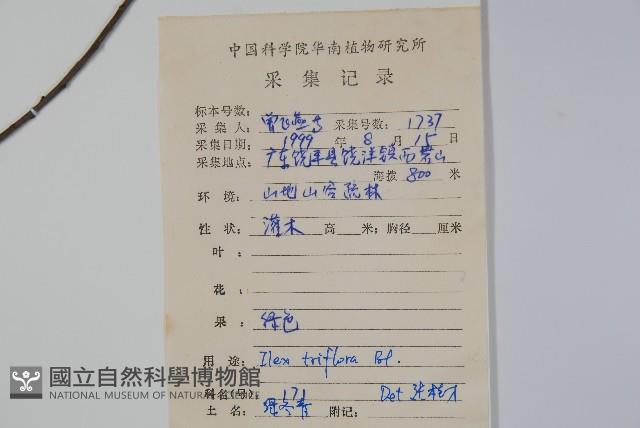 中国科学院华南植物研究所
采集记录
标本号数:
采集人: 曾飞燕等 采集号数: 1737
采集日期: 1999 年 8 月 15 日
采集地点: 广东饶平县饶洋镇西岩山
海拨 800 米
环境: 山地山谷疏林
性状: 灌木 高 米; 胸径 厘米
叶:
花:
果: 绿色
用途: Ilex triflora Bl.
科名(号): 171 Det
土名: 冬青 附记:
國立自然科學博物館
NATIONAL MUSEUM OF NATURAL